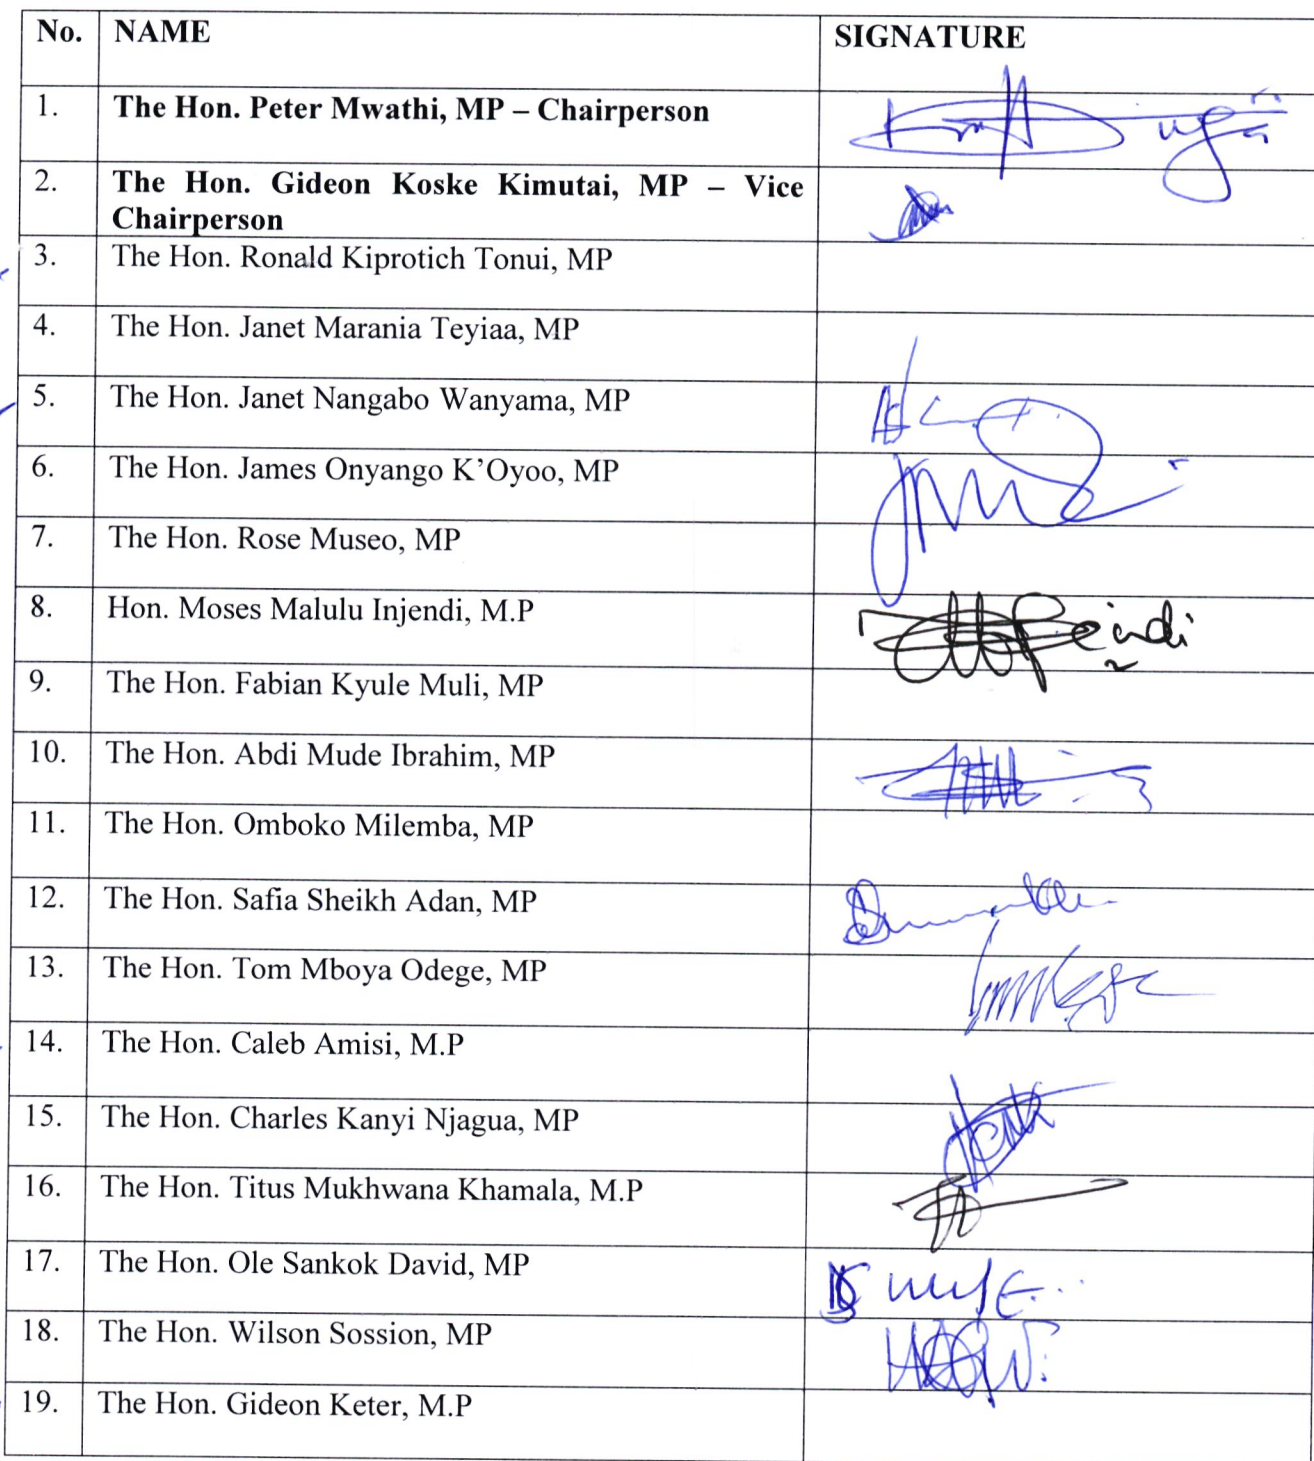 No. NAME SIGNATURE
1. The Hon. Peter Mwathi, MP – Chairperson
2. The Hon. Gideon Koske Kimutai, MP – Vice
Chairperson
3. The Hon. Ronald Kiprotich Tonui, MP
4. The Hon. Janet Marania Teyiaa, MP
5. The Hon. Janet Nangabo Wanyama, MP
6. The Hon. James Onyango K’Oyoo, MP
7. The Hon. Rose Museo, MP
8. Hon. Moses Malulu Injendi, M.P
9. The Hon. Fabian Kyule Muli, MP
10. The Hon. Abdi Mude Ibrahim, MP
11. The Hon. Omboko Milemba, MP
12. The Hon. Safia Sheikh Adan, MP
13. The Hon. Tom Mboya Odege, MP
14. The Hon. Caleb Amisi, M.P
15. The Hon. Charles Kanyi Njagua, MP
16. The Hon. Titus Mukhwana Khamala, M.P
17. The Hon. Ole Sankok David, MP
18. The Hon. Wilson Sossion, MP
19. The Hon. Gideon Keter, M.P